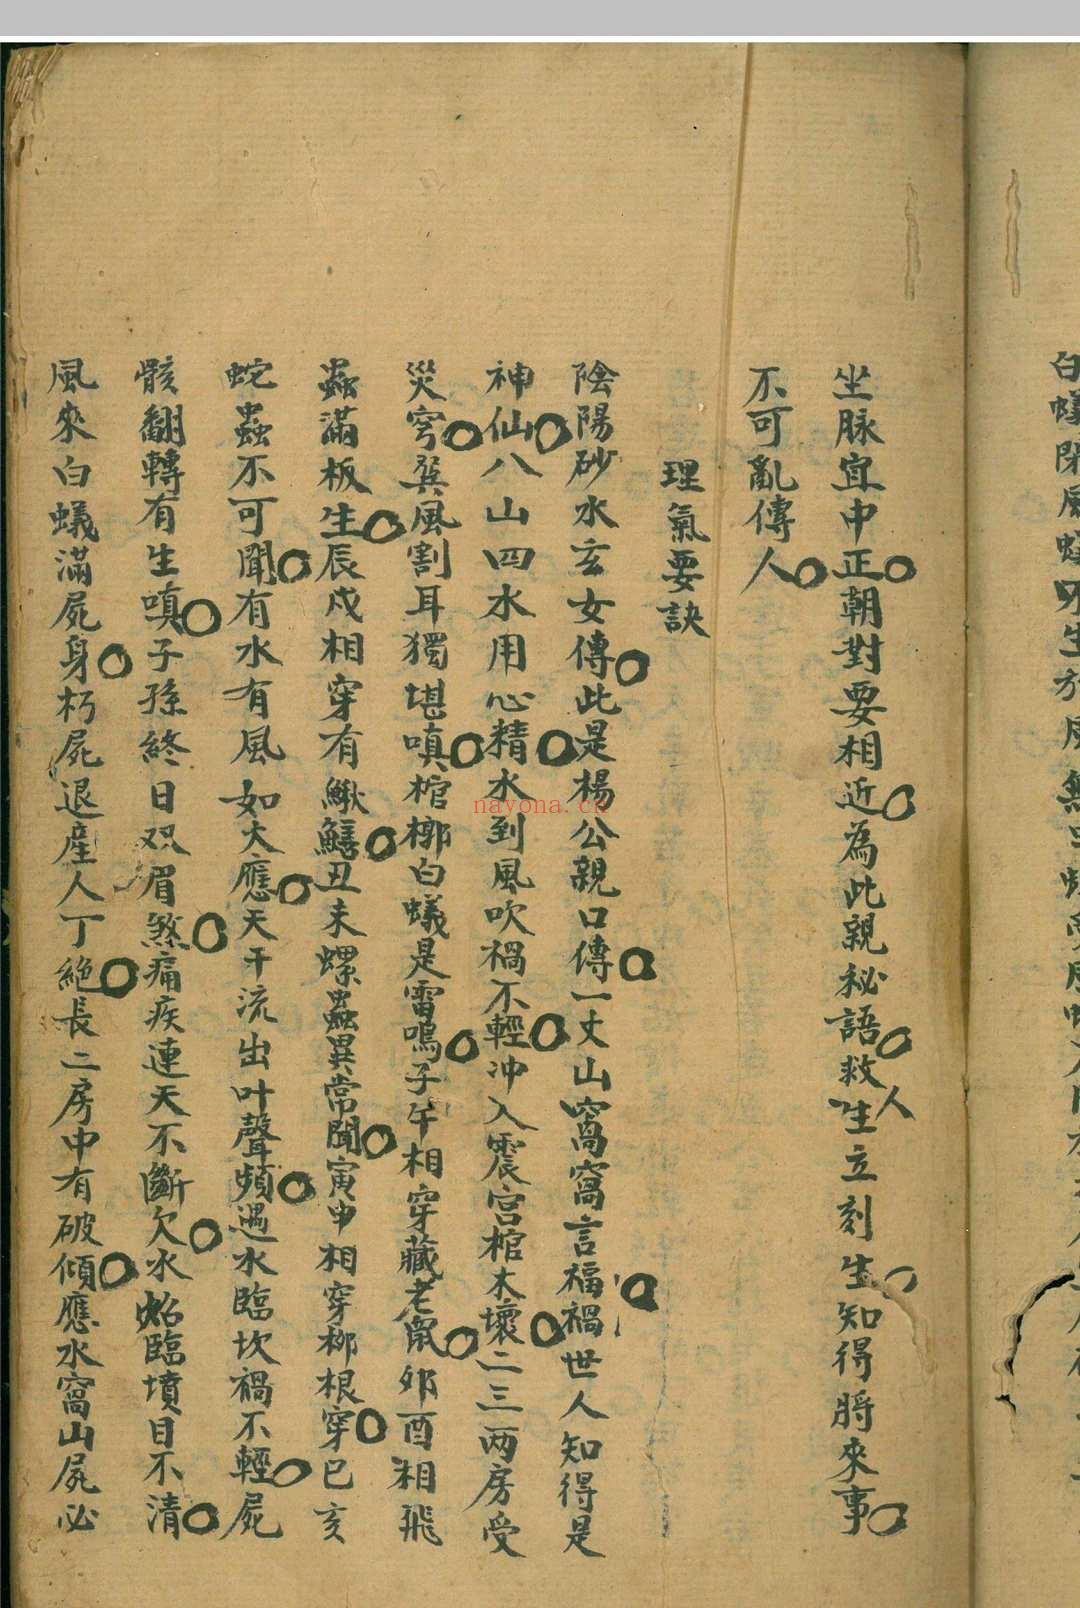 坐脉宜中正朝對要相近為此親秘語救人生立刻生知得將來事
不可亂傳人
理氣要訣
陰陽砂水玄女傳此是楊公親口傳一丈山窩窩言福禍世人知得是
神仙八山四水用心精水到風吹禍不輕沖入震宮棺木壞二三兩房受
災穹巽風割耳獨堪嗔棺槨白蟻是雷鳴子午相穿藏老鼠夘酉相飛
蟲滿板生辰戍相穿有鰍鱔丑未螺蟲異常聞寅申相穿柳根穿巳亥
蛇蟲不可聞有水有風如大應天干流出叶聲頻遇水臨坎禍不輕屍
骸翻轉有生嗔子孫終日双眉煞痛疾連天不斷欠水臨墳目不清
風來白蟻滿屍身朽屍退產人丁絕長二房中有破傾應水窩山屍必
白蟻閉風蟻
nayona.cn